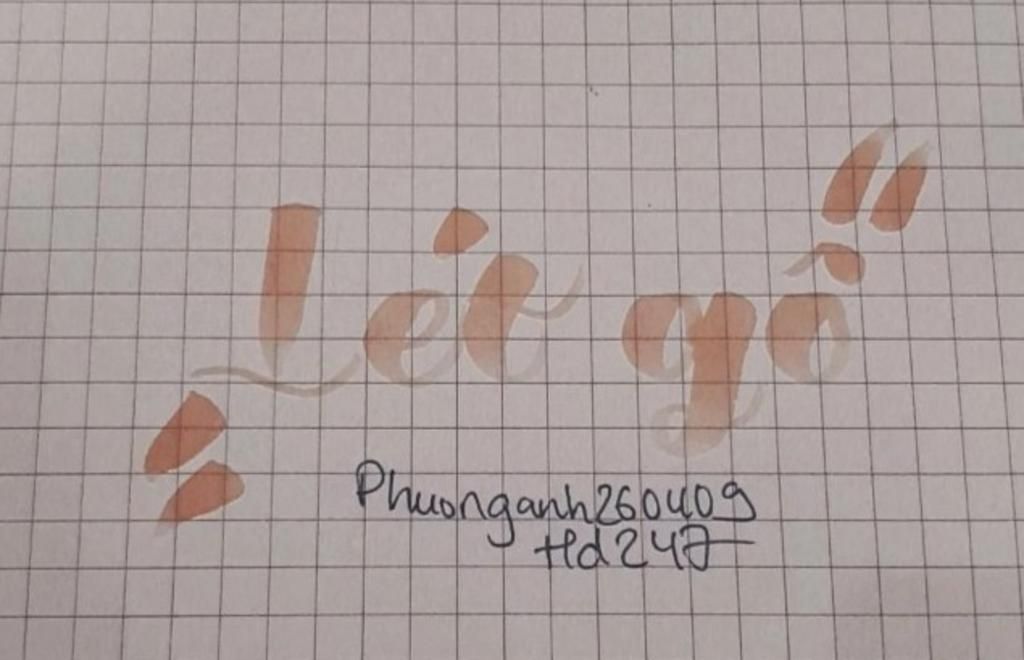 Lét gô
Phuonganh260409
Hd247